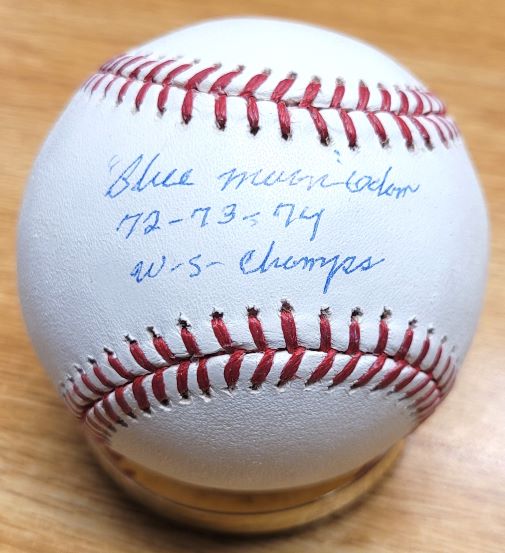 "Blue moon" Odom
72-73-74
W-S- Champs